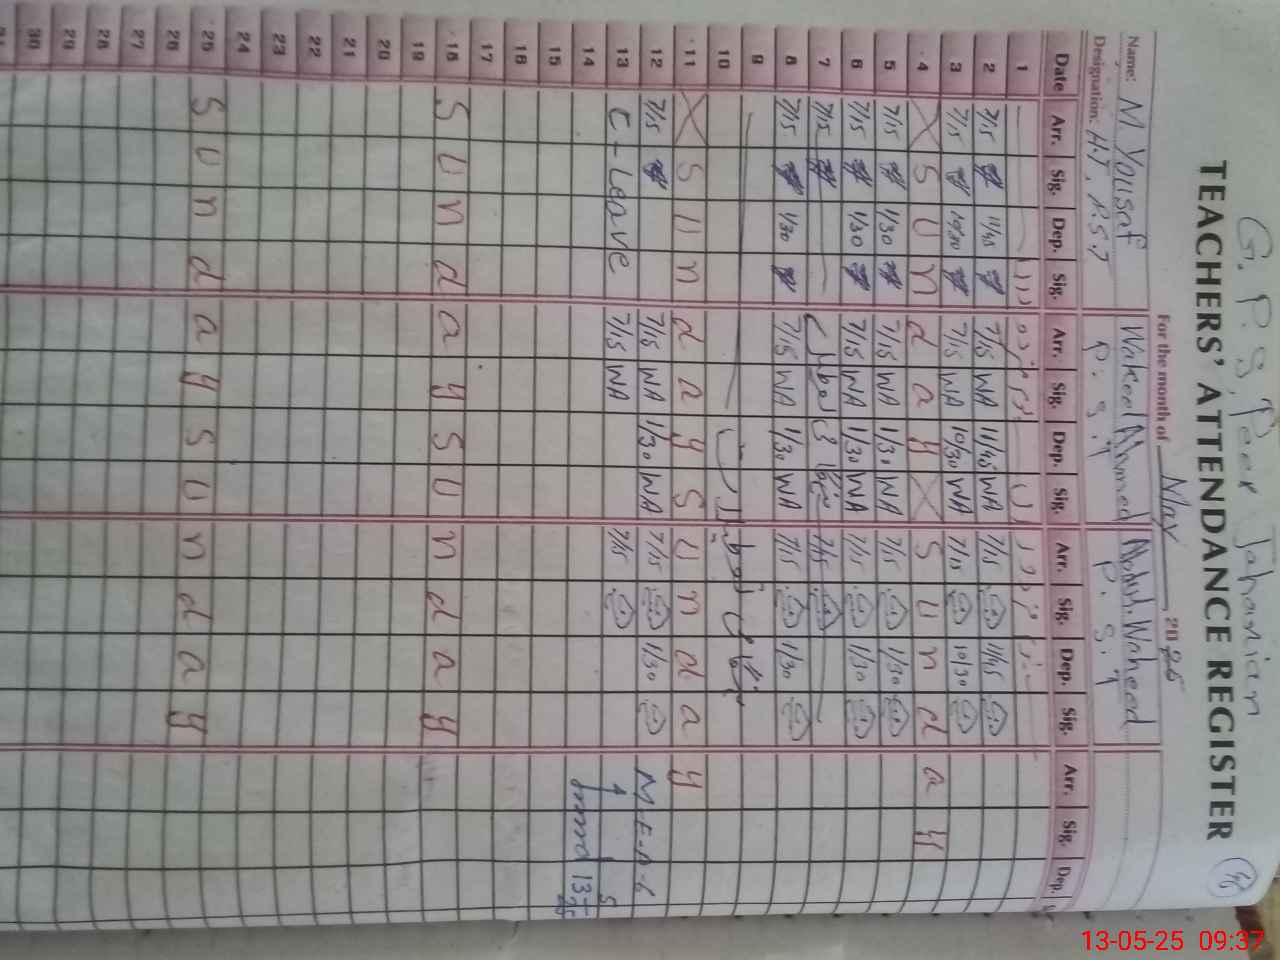 G. P. S, Peer Jahanian
TEACHERS' ATTENDANCE REGISTER
For the month of May 2025
Name: M. Yousaf Wakeel Ahmed Abdul Waheed
Designation: H.T, P.S.T P. S. T P. S. T
Date Arr. Sig. Dep. Sig. Arr. Sig. Dep. Sig. Arr. Sig. Dep. Sig. Arr. Sig. Dep.
1
2 7/15 11/45 7/15 WA 11/45 WA 7/15 11/45
3 7/15 10/30 7/15 WA 10/30 WA 7/15 10/30
4 S U n d a y S U n d a y
5 7/15 1/30 7/15 WA 1/30 WA 7/15 1/30
6 7/15 1/30 7/15 WA 1/30 WA 7/15 1/30
7 7/15 7/15
8 7/15 1/30 7/15 WA 1/30 WA 7/15 1/30
9
10
11 S U n d a y S U n d a y
12 7/15 7/15 WA 1/30 WA 7/15 1/30
13 C-Leave 7/15 WA 7/15
14
15
16
17
18 S U n d a y S U n d a y
19
20
21
22
23
24
25 S U n d a y S U n d a y
26
27
28
29
30
31
13-05-25 09:37